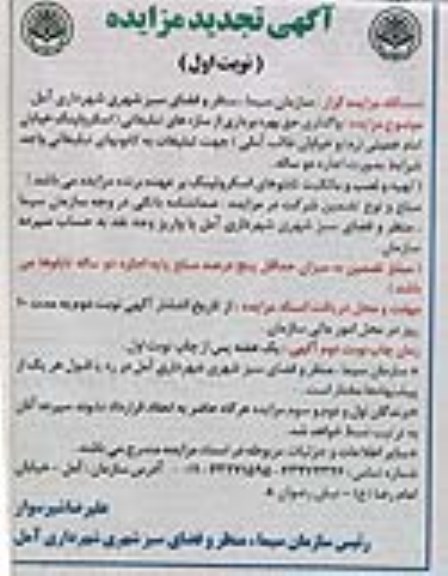 آگهی تجدید مزایده
(نوبت اول)
دستگاه مزایده گزار: سازمان سیما، منظر و فضای سبز شهری شهرداری آمل
موضوع مزایده: واگذاری حق بهره برداری از سازه های تبلیغاتی (اسکرولینگ خیابان
امام خمینی (ره) و خیابان طالب آملی) جهت تبلیغات به کانونهای تبلیغاتی واجد
شرایط بصورت اجاره دو ساله
(تهیه و نصب و مانگیت تابلوهای اسکرولینگ بر عهده برنده مزایده می باشد)
مبلغ و نوع تضمین شرکت در مزایده: ضمانتنامه بانکی در وجه سازمان سیما
، منظر و فضای سبز شهری شهرداری آمل یا واریز وجه نقد به حساب سپرده
سازمان
(مبلغ تضمین به میزان حداقل پنج درصد مبلغ پایه اجاره دو ساله تابلوها می
باشد)
مهلت و محل دریافت اسناد مزایده: از تاریخ انتشار آگهی نوبت دوم به مدت ۱۰
روز در محل امور مالی سازمان.
زمان چاپ نوبت دوم آگهی: یک هفته پس از چاپ نوبت اول.
سازمان سیما، منظر و فضای سبز شهری شهرداری آمل در رد یا قبول هر یک از
پیشنهادها مختار است.
برندگان اول و دوم و سوم مزایده هرگاه حاضر به انعقاد قرارداد نشوند سپرده آنان
به ترتیب ضبط خواهد شد.
سایر اطلاعات و جزئیات مربوطه در اسناد مزایده مندرج می باشد.
شماره تماس: آدرس سازمان: آمل - خیابان
امام رضا (ع) - نبش رضوان
علیرضا شیرسوار
رئیس سازمان سیما، منظر و فضای سبز شهری شهرداری آمل